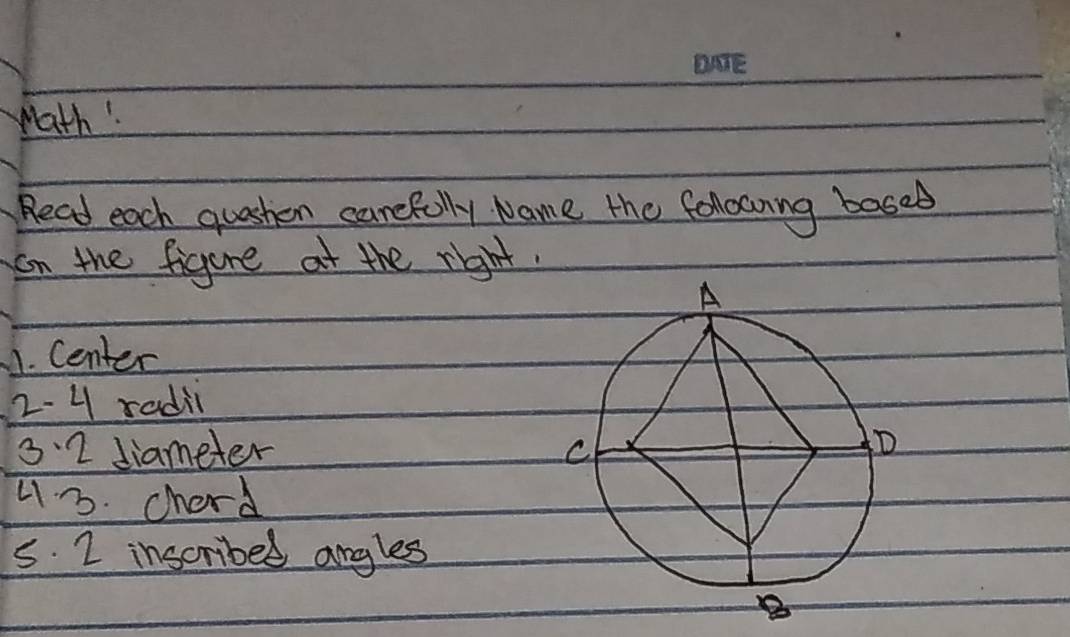 DATE
Math!
Read each question carefully. Name the following based
on the figure at the right.
A
1. Center
2-4 radii
C
D
3.2 diameter
4.3. chord
5.2 inscribed angles
B